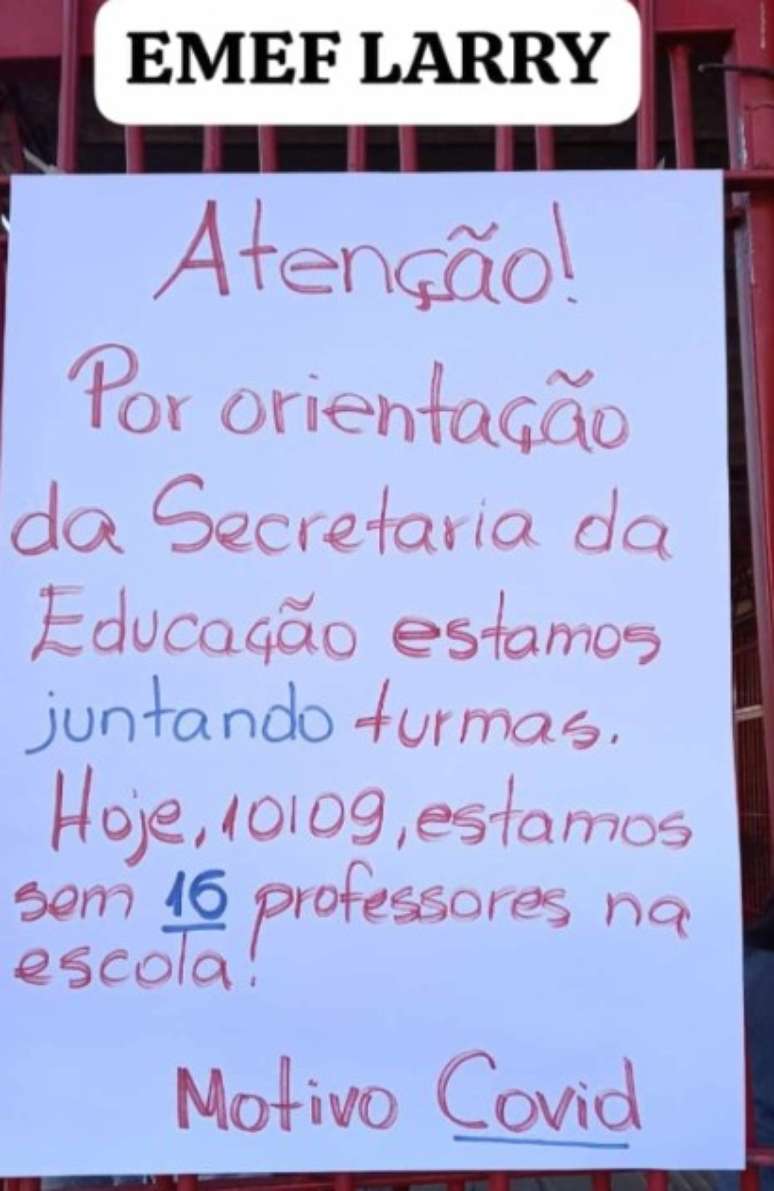 EMEF LARRY
Atenção!
Por orientação
da Secretaria da
Educação estamos
juntando turmas.
Hoje, 10/09, estamos
sem 16 professores na
escola!
Motivo Covid